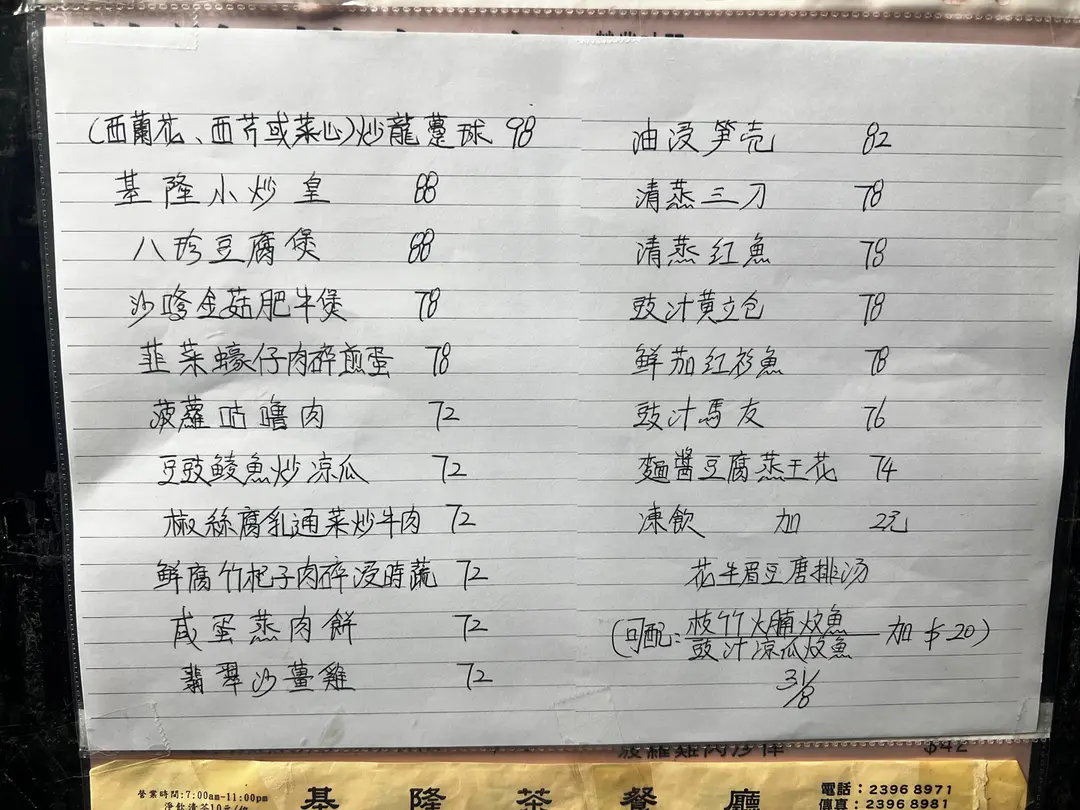 (西蘭花、西芹或菜心)炒龍躉球 98
基隆小炒皇 88
八珍豆腐煲 88
沙嗲金菇肥牛煲 78
韮菜蠔仔肉碎煎蛋 78
菠蘿咕嚕肉 72
豆豉鲮魚炒凉瓜 72
椒絲腐乳通菜炒牛肉 72
鮮腐竹杞子肉碎浸時蔬 72
咸蛋蒸肉餅 72
翡翠沙薑雞 72
油浸笋壳 82
清蒸三刀 78
清蒸紅魚 78
豉汁黄立包 78
鮮茄紅衫魚 78
豉汁馬友 76
麵醬豆腐蒸王花 74
凍飲 加 2元
花生眉豆唐排汤
(可配:枝竹火腩炆魚 加$20)
豉汁凉瓜炆魚
31/8
$42
營業時間:7:00am-11:00pm
基隆茶餐廳
電話:2396 8971
傳真:2396 8981